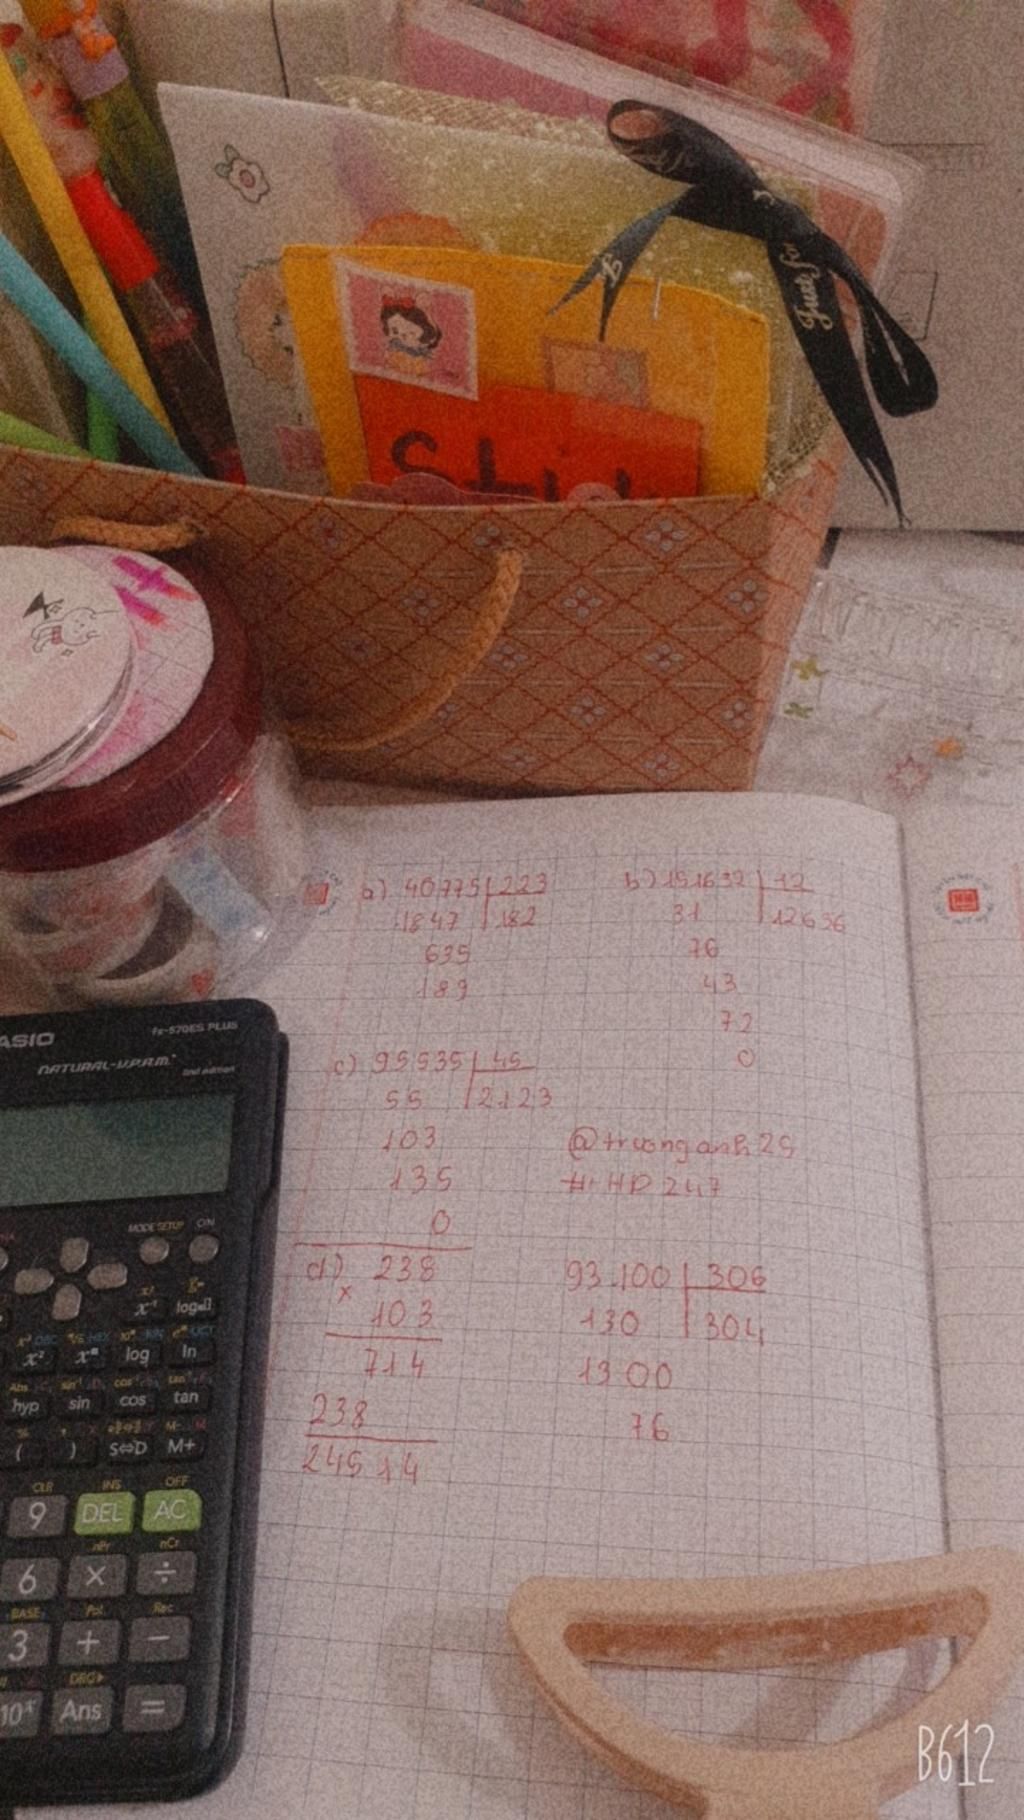 Just for
Stick
a) 40775 223
1847 182
635
189
b) 151632 12
31 12636
76
43
72
0
c) 95535 45
55 2123
103
135
0
@truonganh25
#HHD247
d) 238
x
103
714
238
24514
93.100 306
130 304
1300
76
CASIO
fx-570ES PLUS
NATURAL-V.P.A.M.
2nd edition
MODE SETUP ON
x! 
x⁻¹ log
x² log ln
hyp sin cos tan
( ) S⇔D M+
CLR INS OFF
9 DEL AC
nPr nCr
6 × ÷
BASE Pol Rec
3 + −
DRG▸
10ˣ Ans =
B612